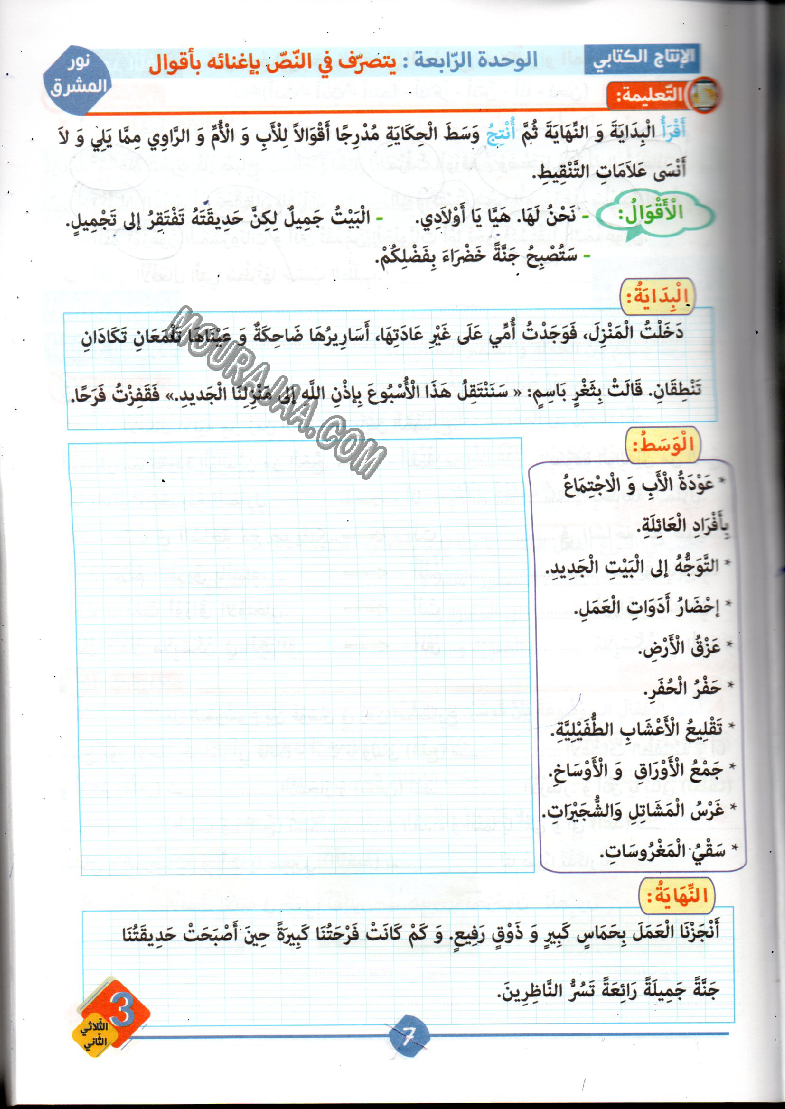 الإنتاج الكتابي
الوحدة الرّابعة : يتصرّف في النّصّ بإغنائه بأقوال
نور
المشرق
التّعليمة:
أَقْرَأُ الْبِدَايَةَ وَ النِّهَايَةَ ثُمَّ أُنْتِجُ وَسَطَ الْحِكَايَةِ مُدْرِجًا أَقْوَالاً لِلْأَبِ وَ الْأُمِّ وَ الرَّاوِي مِمَّا يَلِي وَ لاَ
أَنْسَى عَلاَمَاتِ التَّنْقِيطِ.
الْأَقْوَالُ:
- نَحْنُ لَهَا. هَيَّا يَا أَوْلاَدِي. - الْبَيْتُ جَمِيلٌ لكِنَّ حَدِيقَتَهُ تَفْتَقِرُ إلى تَجْمِيلٍ.
- سَتُصْبِحُ جَنَّةً خَضْرَاءَ بِفَضْلِكُمْ.
الْبِدَايَةُ:
دَخَلْتُ الْمَنْزِلَ، فَوَجَدْتُ أُمِّي عَلَى غَيْرِ عَادَتِهَا، أَسَارِيرُهَا ضَاحِكَةٌ وَ عَيْنَاهَا تَلْمَعَانِ تَكَادَانِ
تَنْطِقَانِ. قَالَتْ بِثَغْرٍ بَاسِمٍ: « سَنَنْتَقِلُ هَذَا الْأُسْبُوعَ بِإِذْنِ اللَّهِ إلى مَنْزِلِنَا الْجَدِيدِ.» فَقَفِزْتُ فَرَحًا.
MOURAJAA.COM
الْوَسَطُ:
* عَوْدَةُ الْأَبِ وَ الْاجْتِمَاعُ
بِأَفْرَادِ الْعَائِلَةِ.
* التَّوَجُّهُ إلى الْبَيْتِ الْجَدِيدِ.
* إحْضَارُ أَدَوَاتِ الْعَمَلِ.
* عَزْقُ الْأَرْضِ.
* حَفْرُ الْحُفَرِ.
* تَقْلِيعُ الْأَعْشَابِ الطُّفَيْلِيَّةِ.
* جَمْعُ الْأَوْرَاقِ وَ الْأَوْسَاخِ.
* غَرْسُ الْمَشَاتِلِ وَالشُّجَيْرَاتِ.
* سَقْيُ الْمَغْرُوسَاتِ.
النِّهَايَةُ:
أَنْجَزْنَا الْعَمَلَ بِحَمَاسٍ كَبِيرٍ وَ ذَوْقٍ رَفِيعٍ. وَ كَمْ كَانَتْ فَرْحَتُنَا كَبِيرَةً حِينَ أَصْبَحَتْ حَدِيقَتُنَا
جَنَّةً جَمِيلَةً رَائِعَةً تَسُرُّ النَّاظِرِينَ.
3
الثلاثي
الثاني
7